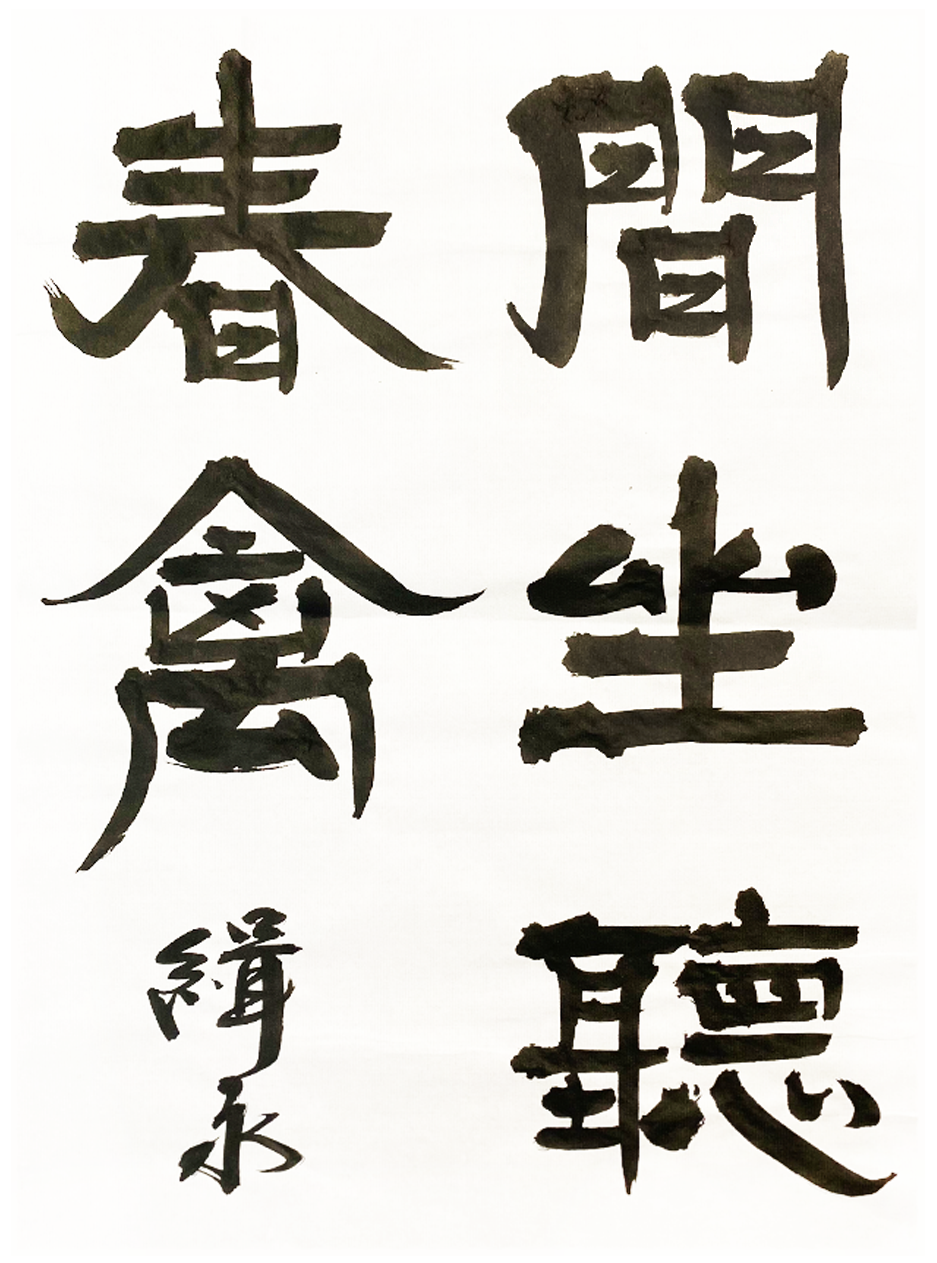 間坐聽
春禽
緝永